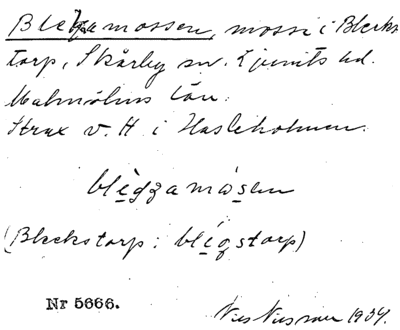 Bleksamossen, mosse i Blecks
torp, Skårby sn. Ljunits hd.
Malmöhus län.
Strax v. H. i Hasleholmen.
blègzamòsen
(Bleckstorp: blégstorp)
Nr 5666. Nils Nilsson 1934.